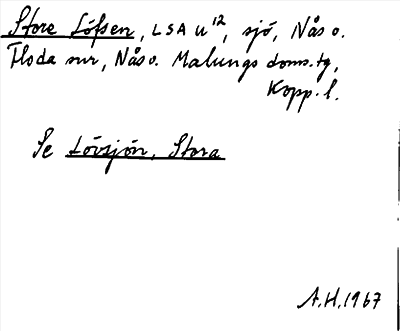 Store Löfsen, LSA u¹², sjö, Nås o.
Floda snr, Nås o. Malungs doms.tg,
Kopp. l.
Se Lövsjön, Stora
A.H. 1967